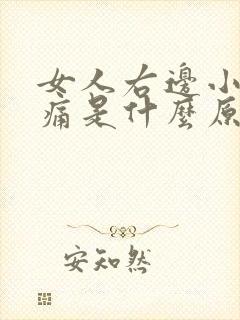 女人右邊小
痛是什麼原
安知然